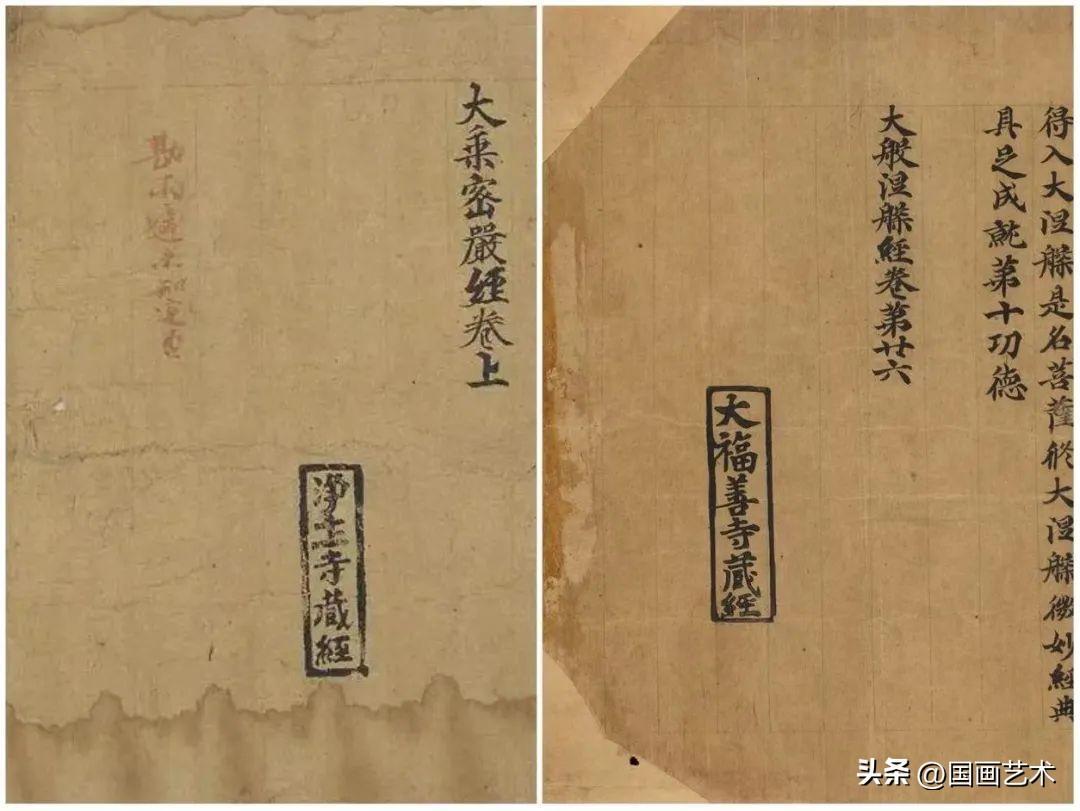 大乘密嚴經卷上
淨土寺藏經
勘兩遍
得入大涅槃是名菩薩於大涅槃微妙經典
具足成就第十功德
大般涅槃經卷第廿六
大福善寺藏經
头条 @国画艺术